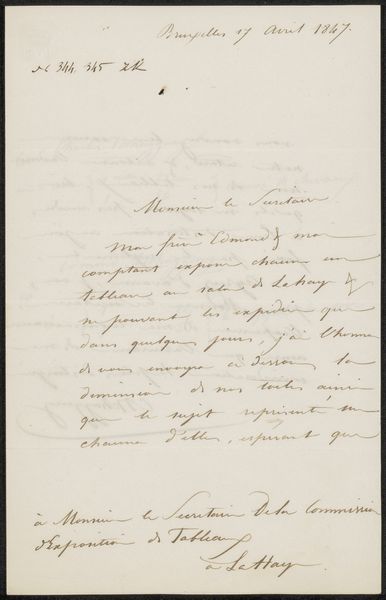 Bruxelles 17 Avril 1847.
N° 344. 345 ZK
Monsieur le Secrétaire
Mon frère Edmond & moi
comptant exposer chacun un
tableau au salon de LaHaye &
ne pouvant les expédier que
dans quelques jours, j'ai l'honneur
de vous envoyer ci dessous la
dimension de nos toiles ainsi
que le sujet représenté sur
chacune d'elles, espérant que
à Monsieur le Secrétaire De la Commission
d'Exposition de Tableaux
à LaHaye